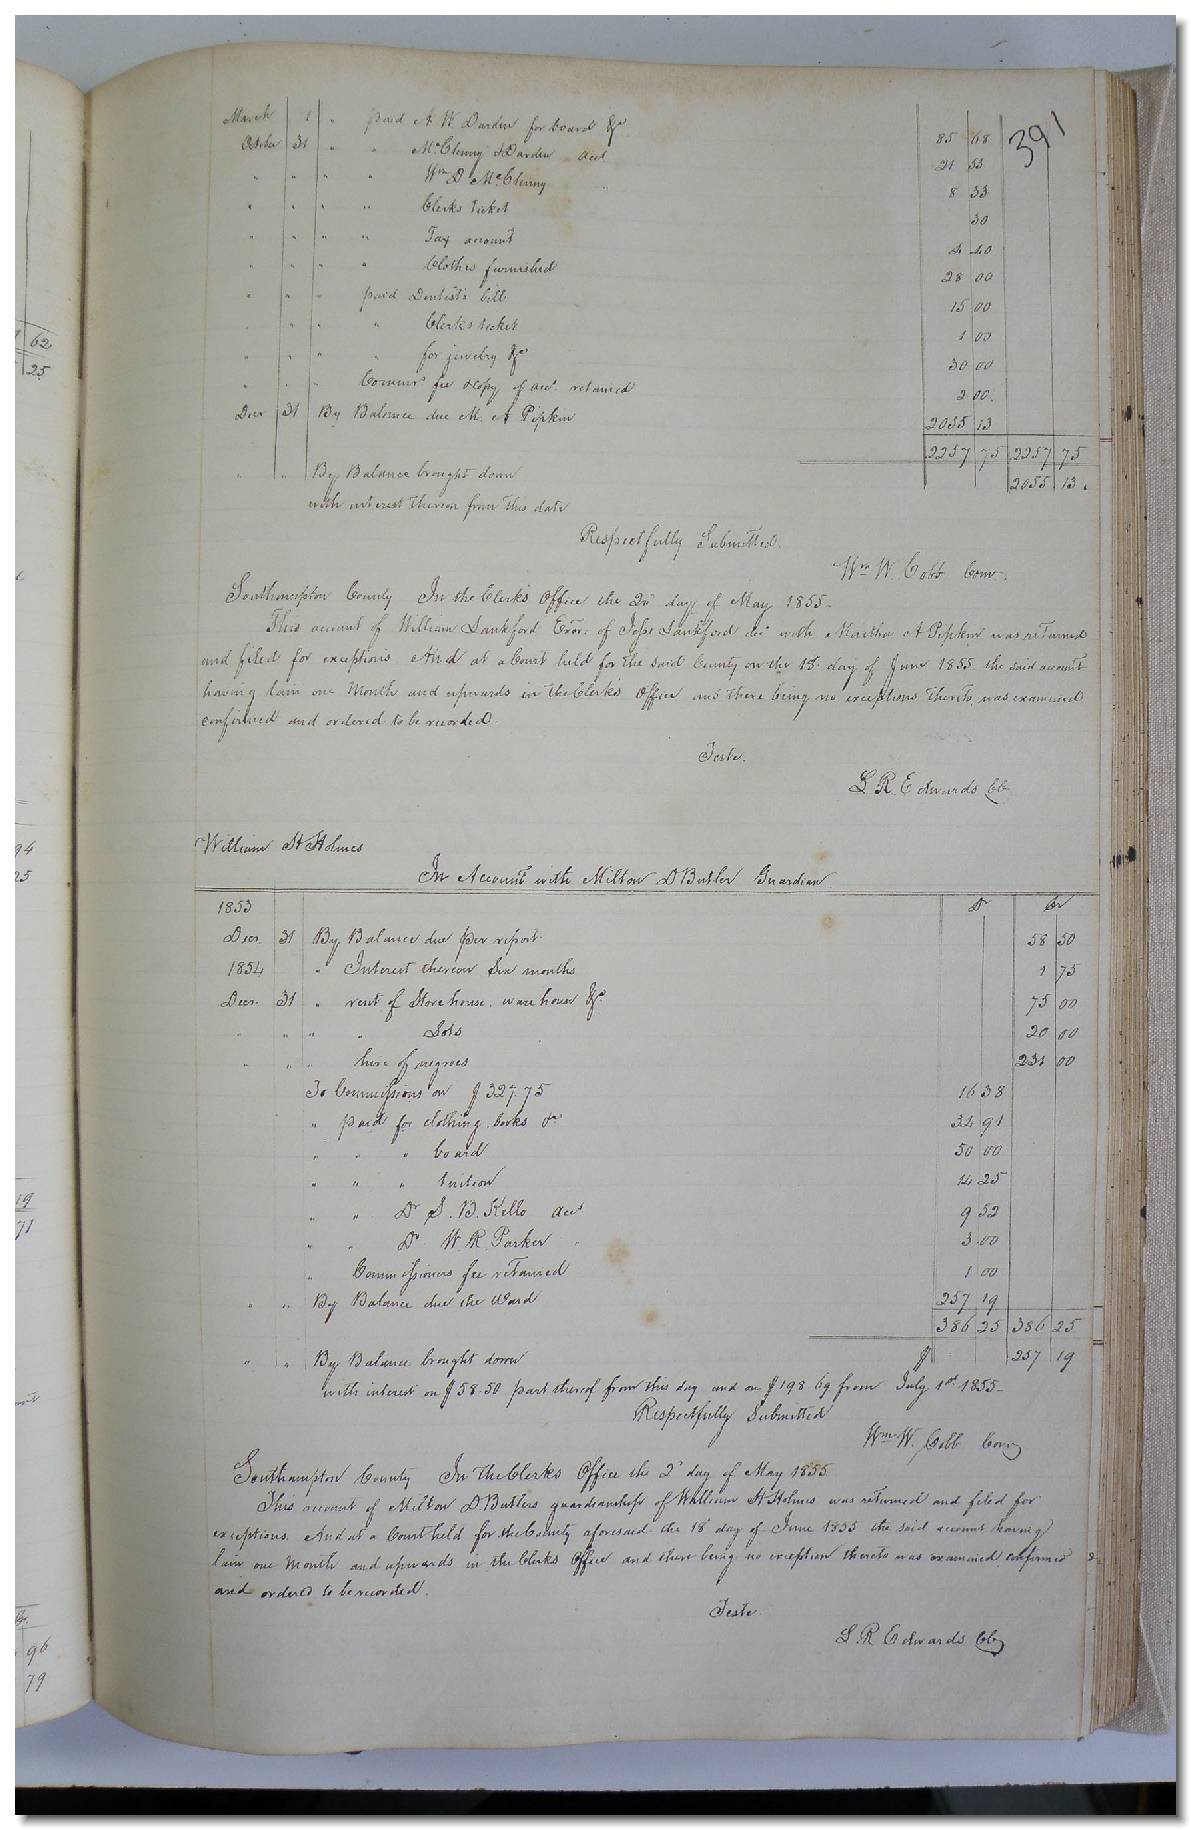 391
March 1 " paid A. W. Darden for board &c 85 68
October 31 " " McClenny & Darden acct 21 33
" " " " Wm D McClenny " 8 33
" " " " Clerks ticket 30
" " " " Tax account 4 40
" " " " Clothes furnished 28 00
" " " paid Dentists bill 15 00
" " " " Clerks ticket 1 00
" " " " for jewelry &c 30 00
" " " Commrs fee & copy of acct returned 2 00
Decr 31 By Balance due M. A Pipkin 2055 13
2257 75 2257 75
" " By Balance brought down 2055 13
with interest thereon from this date
Respectfully Submitted.
Wm W. Cobb Comr
Southampton County In the Clerk's Office the 2d day of May 1855
This account of William Lankford Exor. of Jesse Lankford dec with Martha A Pipkin was returned
and filed for exceptions And at a Court held for the said County on the 18 day of June 1855 the said account
having lain one Month and upwards in the Clerk's Office and there being no exceptions thereto, was examined
confirmed and ordered to be recorded.
Teste.
L. R. Edwards Clk
William H Holmes
In Account with Milton D Butler Guardian
1853 Dr Cr
Decr. 31 By Balance due per report 58 50
1854 " Interest thereon Six months 1 75
Decr. 31 " rent of Store house, ware house &c 75 00
" " " " Lots 20 00
" " " hire of negroes 231 00
To Commissions on $327.75 16 38
" paid for clothing books &c 34 91
" " " board 50 00
" " " tuition 14 25
" " Dr S. B. Kello acct 9 52
" " Dr W. R. Parker " 3 00
" Commissioners fee returned 1 00
" " By Balance due the Ward 257 19
386 25 386 25
" " By Balance brought down $ 257 19
with interest on $58.50 part thereof from this day and on $198 69 from July 1st 1855
Respectfully Submitted
Wm W. Cobb Comr
Southampton County In the Clerks Office the 2d day of May 1855
This account of Milton D. Butlers guardianship of William H Holmes was returned and filed for
exceptions. And at a Court held for the County aforesaid the 18 day of June 1855 the said account having
lain one Month and upwards in the Clerks Office and there being no exception thereto was examined, confirmed
and ordered to be recorded.
Teste
L R Edwards Clk